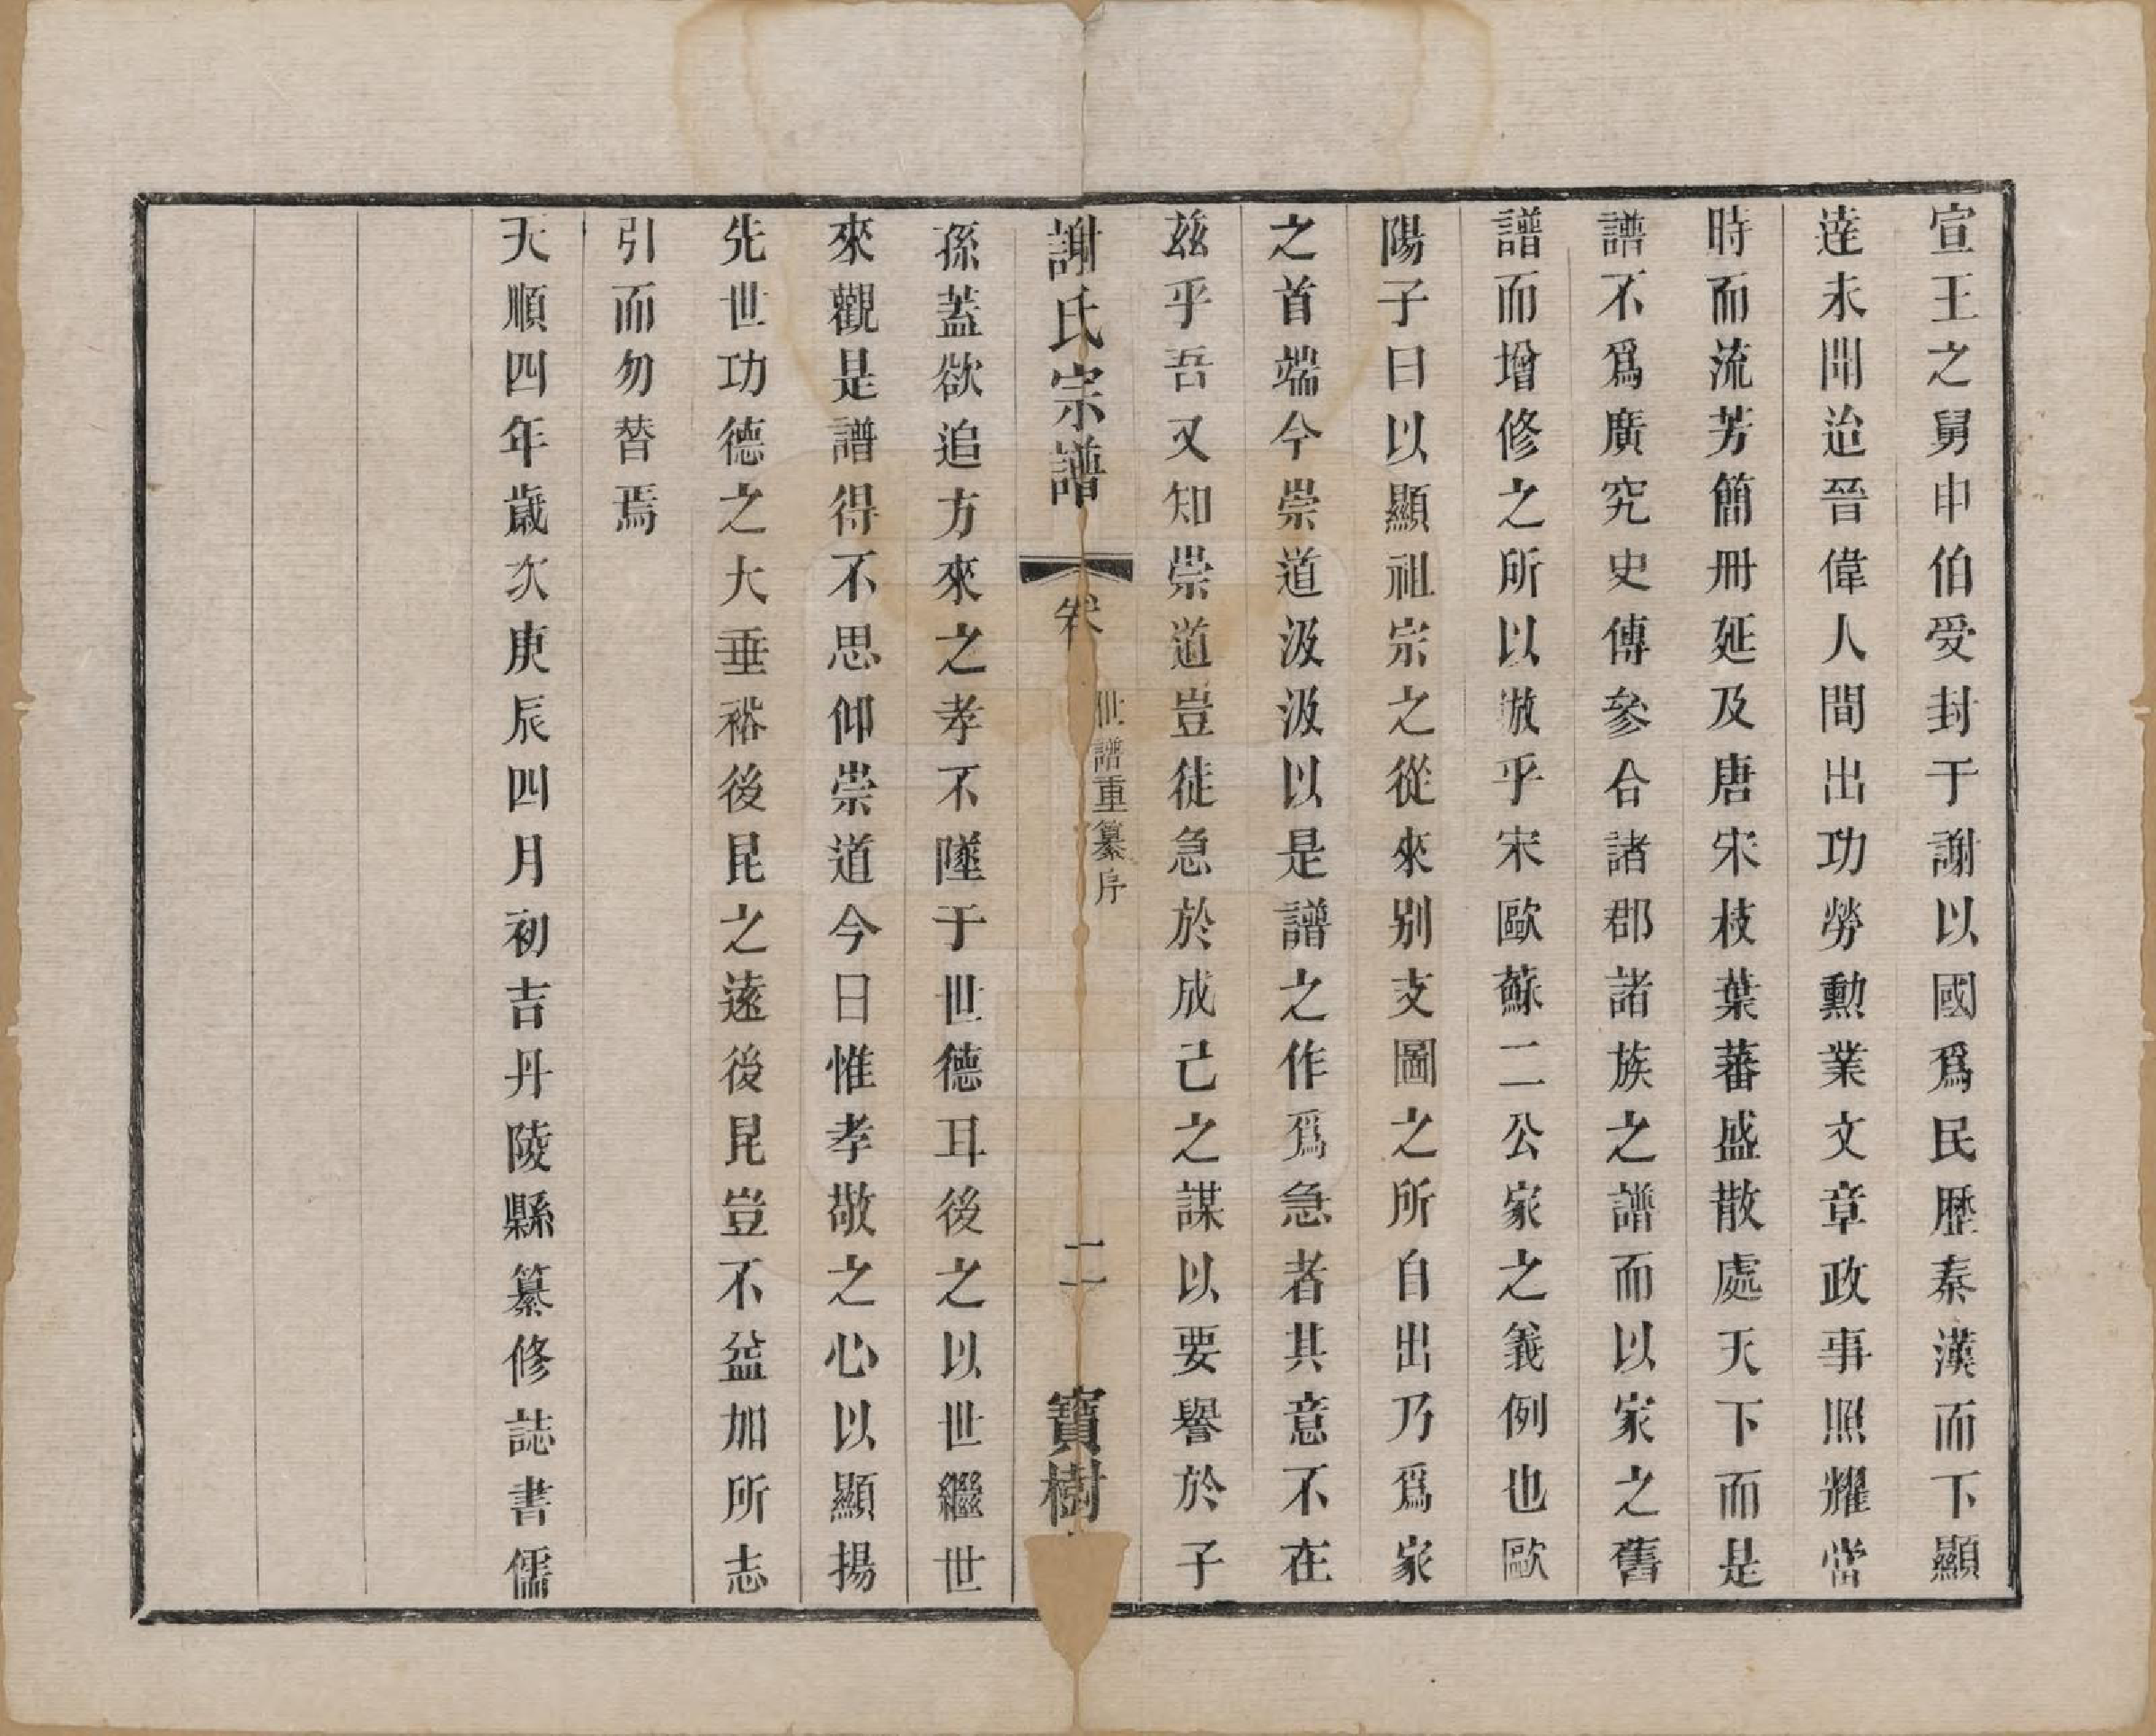 宣王之舅申伯受封于謝以國爲民歷秦漢而下顯
達未聞迨晉偉人間出功勞勳業文章政事照耀當
時而流芳簡冊延及唐宋枝葉蕃盛散處天下而是
譜不爲廣究史傳參合諸郡諸族之譜而以家之舊
譜而增修之所以倣乎宋歐蘇二公家之義例也歐
陽子曰以顯祖宗之從來别支圖之所自出乃爲家
之首端今崇道汲汲以是譜之作爲急者其意不在
茲乎吾又知崇道豈徒急於成己之謀以要譽於子
謝氏宗譜
卷
世譜重纂序
二
寶樹
孫蓋欲追方來之孝不墜于世德耳後之以世繼世
來觀是譜得不思仰崇道今日惟孝敬之心以顯揚
先世功德之大垂裕後昆之遠後昆豈不益加所志
引而勿替焉
天順四年歲次庚辰四月初吉丹陵縣纂修誌書儒